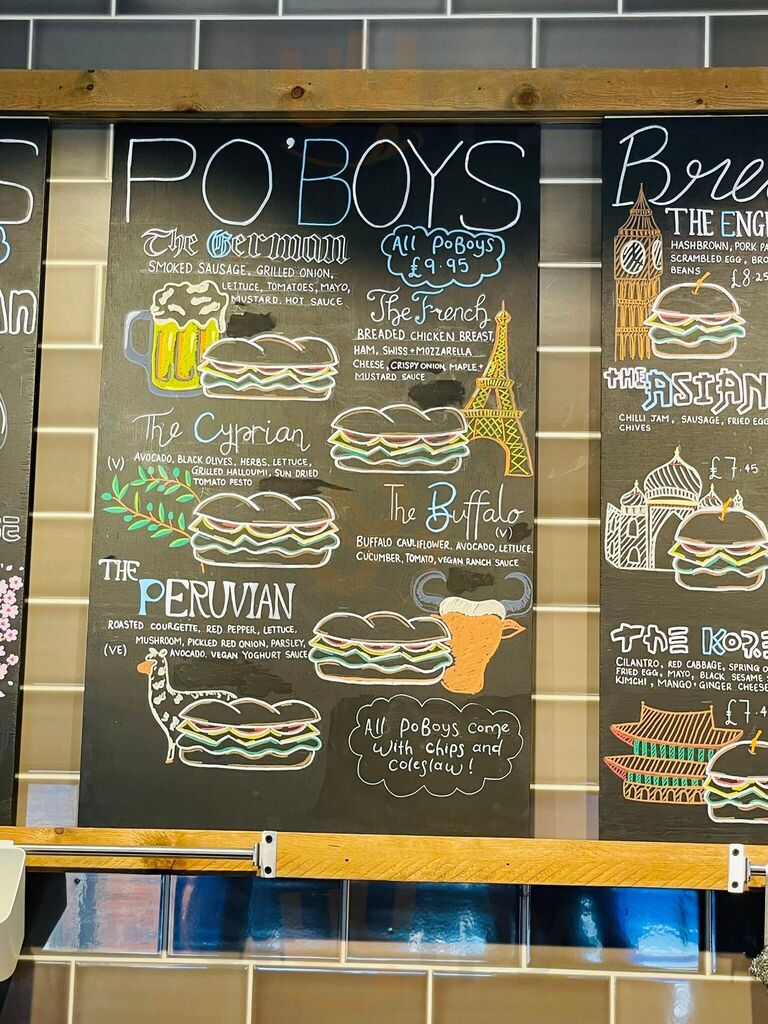 PO'BOYS
The German
SMOKED SAUSAGE, GRILLED ONION,
LETTUCE, TOMATOES, MAYO,
MUSTARD, HOT SAUCE
All PoBoys
£9.95
The French
BREADED CHICKEN BREAST,
HAM, SWISS + MOZZARELLA
CHEESE, CRISPY ONION, MAPLE +
MUSTARD SAUCE
The Cyprian
(V) AVOCADO, BLACK OLIVES, HERBS, LETTUCE,
GRILLED HALLOUMI, SUN DRIED
TOMATO PESTO
The Buffalo
(V)
BUFFALO CAULIFLOWER, AVOCADO, LETTUCE,
CUCUMBER, TOMATO, VEGAN RANCH SAUCE
THE
PERUVIAN
ROASTED COURGETTE, RED PEPPER, LETTUCE,
MUSHROOM, PICKLED RED ONION, PARSLEY,
(VE) AVOCADO, VEGAN YOGHURT SAUCE
All PoBoys come
with chips and
coleslaw!
Bre
THE ENG
HASHBROWN, PORK PA
SCRAMBLED EGG, BRO
BEANS £8.25
THE ASIAN
CHILLI JAM, SAUSAGE, FRIED EGG
CHIVES
£7.45
THE KORE
CILANTRO, RED CABBAGE, SPRING O
FRIED EGG, MAYO, BLACK SESAME S
KIMCHI, MANGO + GINGER CHEESE
£7.4